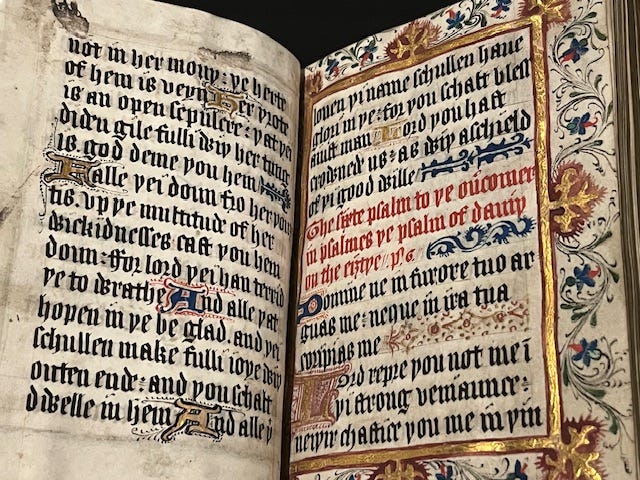 not in her mouy: ye herte
of hem is veyn Her yrote
is an open sepulcre: yat yei
diden gile fulli wiy her tunge
is. god deme you hem
Falle yei doun fro her you
tis. vp ye multitude of her
wickidnesses cast you hem
doun: ffor lord yei han terrid
ye to wraththe And alle yat
hopen in ye be glad. and yei
schullen make fulli ioye wiy
outen ende: and you schalt
dwelle in hem And alle y
louen yi name schullen haue
glori in ye: for you schalt bless
a iust man Lord you hast
crowned us: as wiy a schield
of yi good wille
The sixte psalm to ye ouercomer
in psalmes ye psalm of dauiy
on the eiȝtye
Domine ne in furore tuo ar
guas me: neque in ira tua
corripias me
Lord repre you not me ī
yi strong veniaunce:
neiyir chastice you me in yin